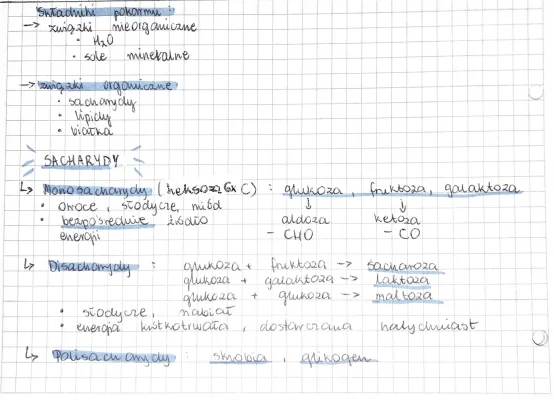 Składniki pokarmu:
-> związki nieorganiczne
• H₂O
• sole mineralne
-> związki organiczne
• sacharydy
• lipidy
• białka
SACHARYDY
↳ Monosacharydy (heksoza 6x C) : glukoza, fruktoza, galaktoza
• owoce, słodycze, miód ↓ ↓
• bezpośrednie źródło aldoza ketoza
energii - CHO - CO
↳ Disacharydy : glukoza + fruktoza -> sacharoza
glukoza + galaktoza -> laktoza
glukoza + glukoza -> maltoza
• słodycze, nabiał
• energia krótkotrwała, dostarczana natychmiast
↳ Polisacharydy : skrobia, glikogen